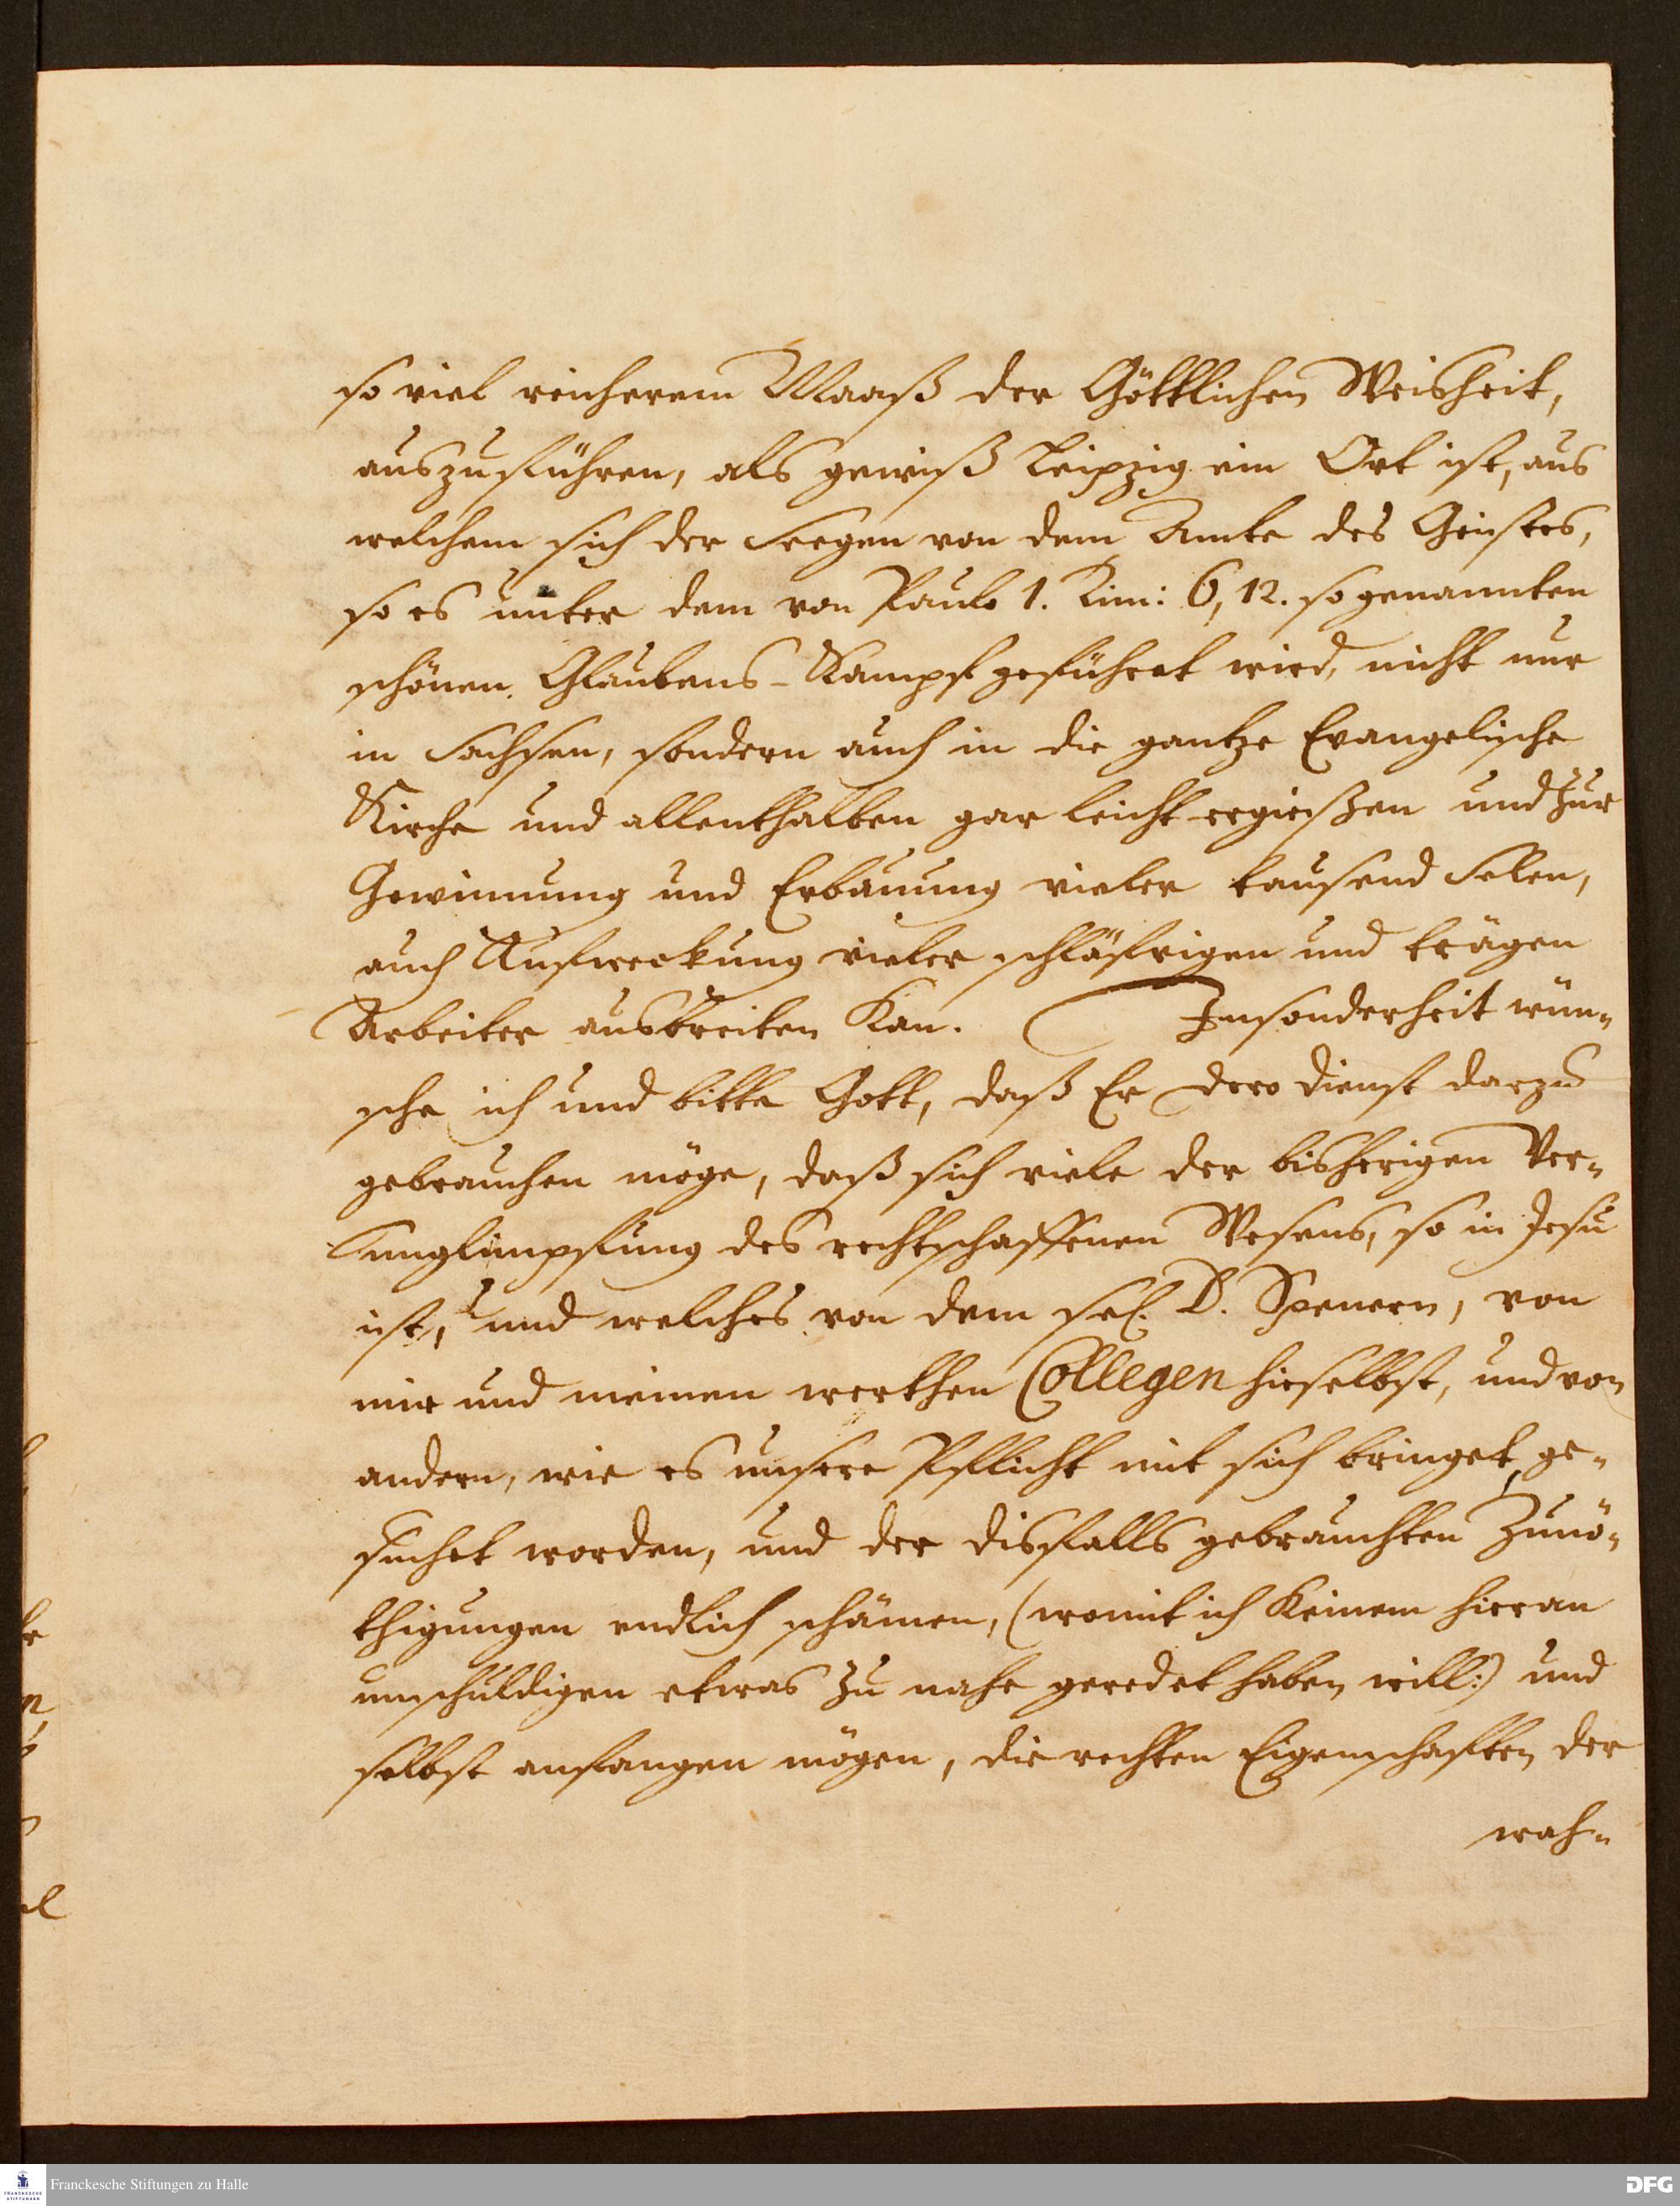 so viel reicherem Maaß der Göttlichen Weisheit,
auszuführen, als gewiß Leipzig ein Ort ist, aus
welchem sich der Seegen von dem Amte des Geistes,
so es unter dem von Paulo 1. Tim: 6, 12. so genannten
schönen Glaubens-Kampf geführet wird, nicht nur
in Sachsen, sondern auch in die gantze Evangelische
Kirche und allenthalben gar leicht ergießen und zur
Gewinnung und Erbauung vieler tausend Selen,
auch Aufweckung vieler schläfrigen und trägen
Arbeiter ausbreiten kan. Insonderheit wün-
sche ich und bitte Gott, daß Er dero Dienst darzu
gebrauchen möge, daß sich viele der bisherigen Ver-
unglimpfung des rechtschaffenen Wesens, so in Jesu
ist, und welches von dem sel. D. Spenern, von
mir und meinen werthen Collegen hieselbst, und von
andern, wie es unsere Pflicht mit sich bringet, ge-
suchet worden, und der disfalls gebrauchten Zunö-
thigungen endlich schämen, (womit ich keinem hieran
unschuldigen etwas zu nahe geredet haben will:) und
selbst anfangen mögen, die rechten Eigenschafften der
wah-
Franckesche Stiftungen zu Halle
DFG